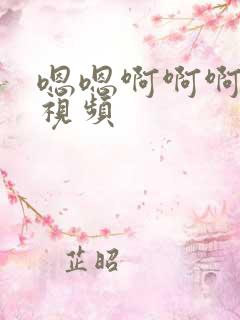 嗯嗯啊啊啊
視頻
芷昭